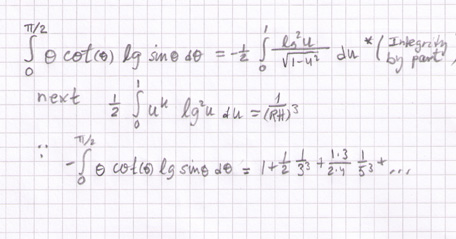 ∫₀^{π/2} θ cot(θ) lg sinθ dθ = -1/2 ∫₀¹ lg²u / √(1-u²) du * (Integrity by part,
next 1/2 ∫₀¹ uⁿ lg²u du = 1/(RH)³
∵ -∫₀^{π/2} θ cot(θ) lg sinθ dθ = 1 + 1/2 1/3³ + 1·3/2·4 1/5³ + ...